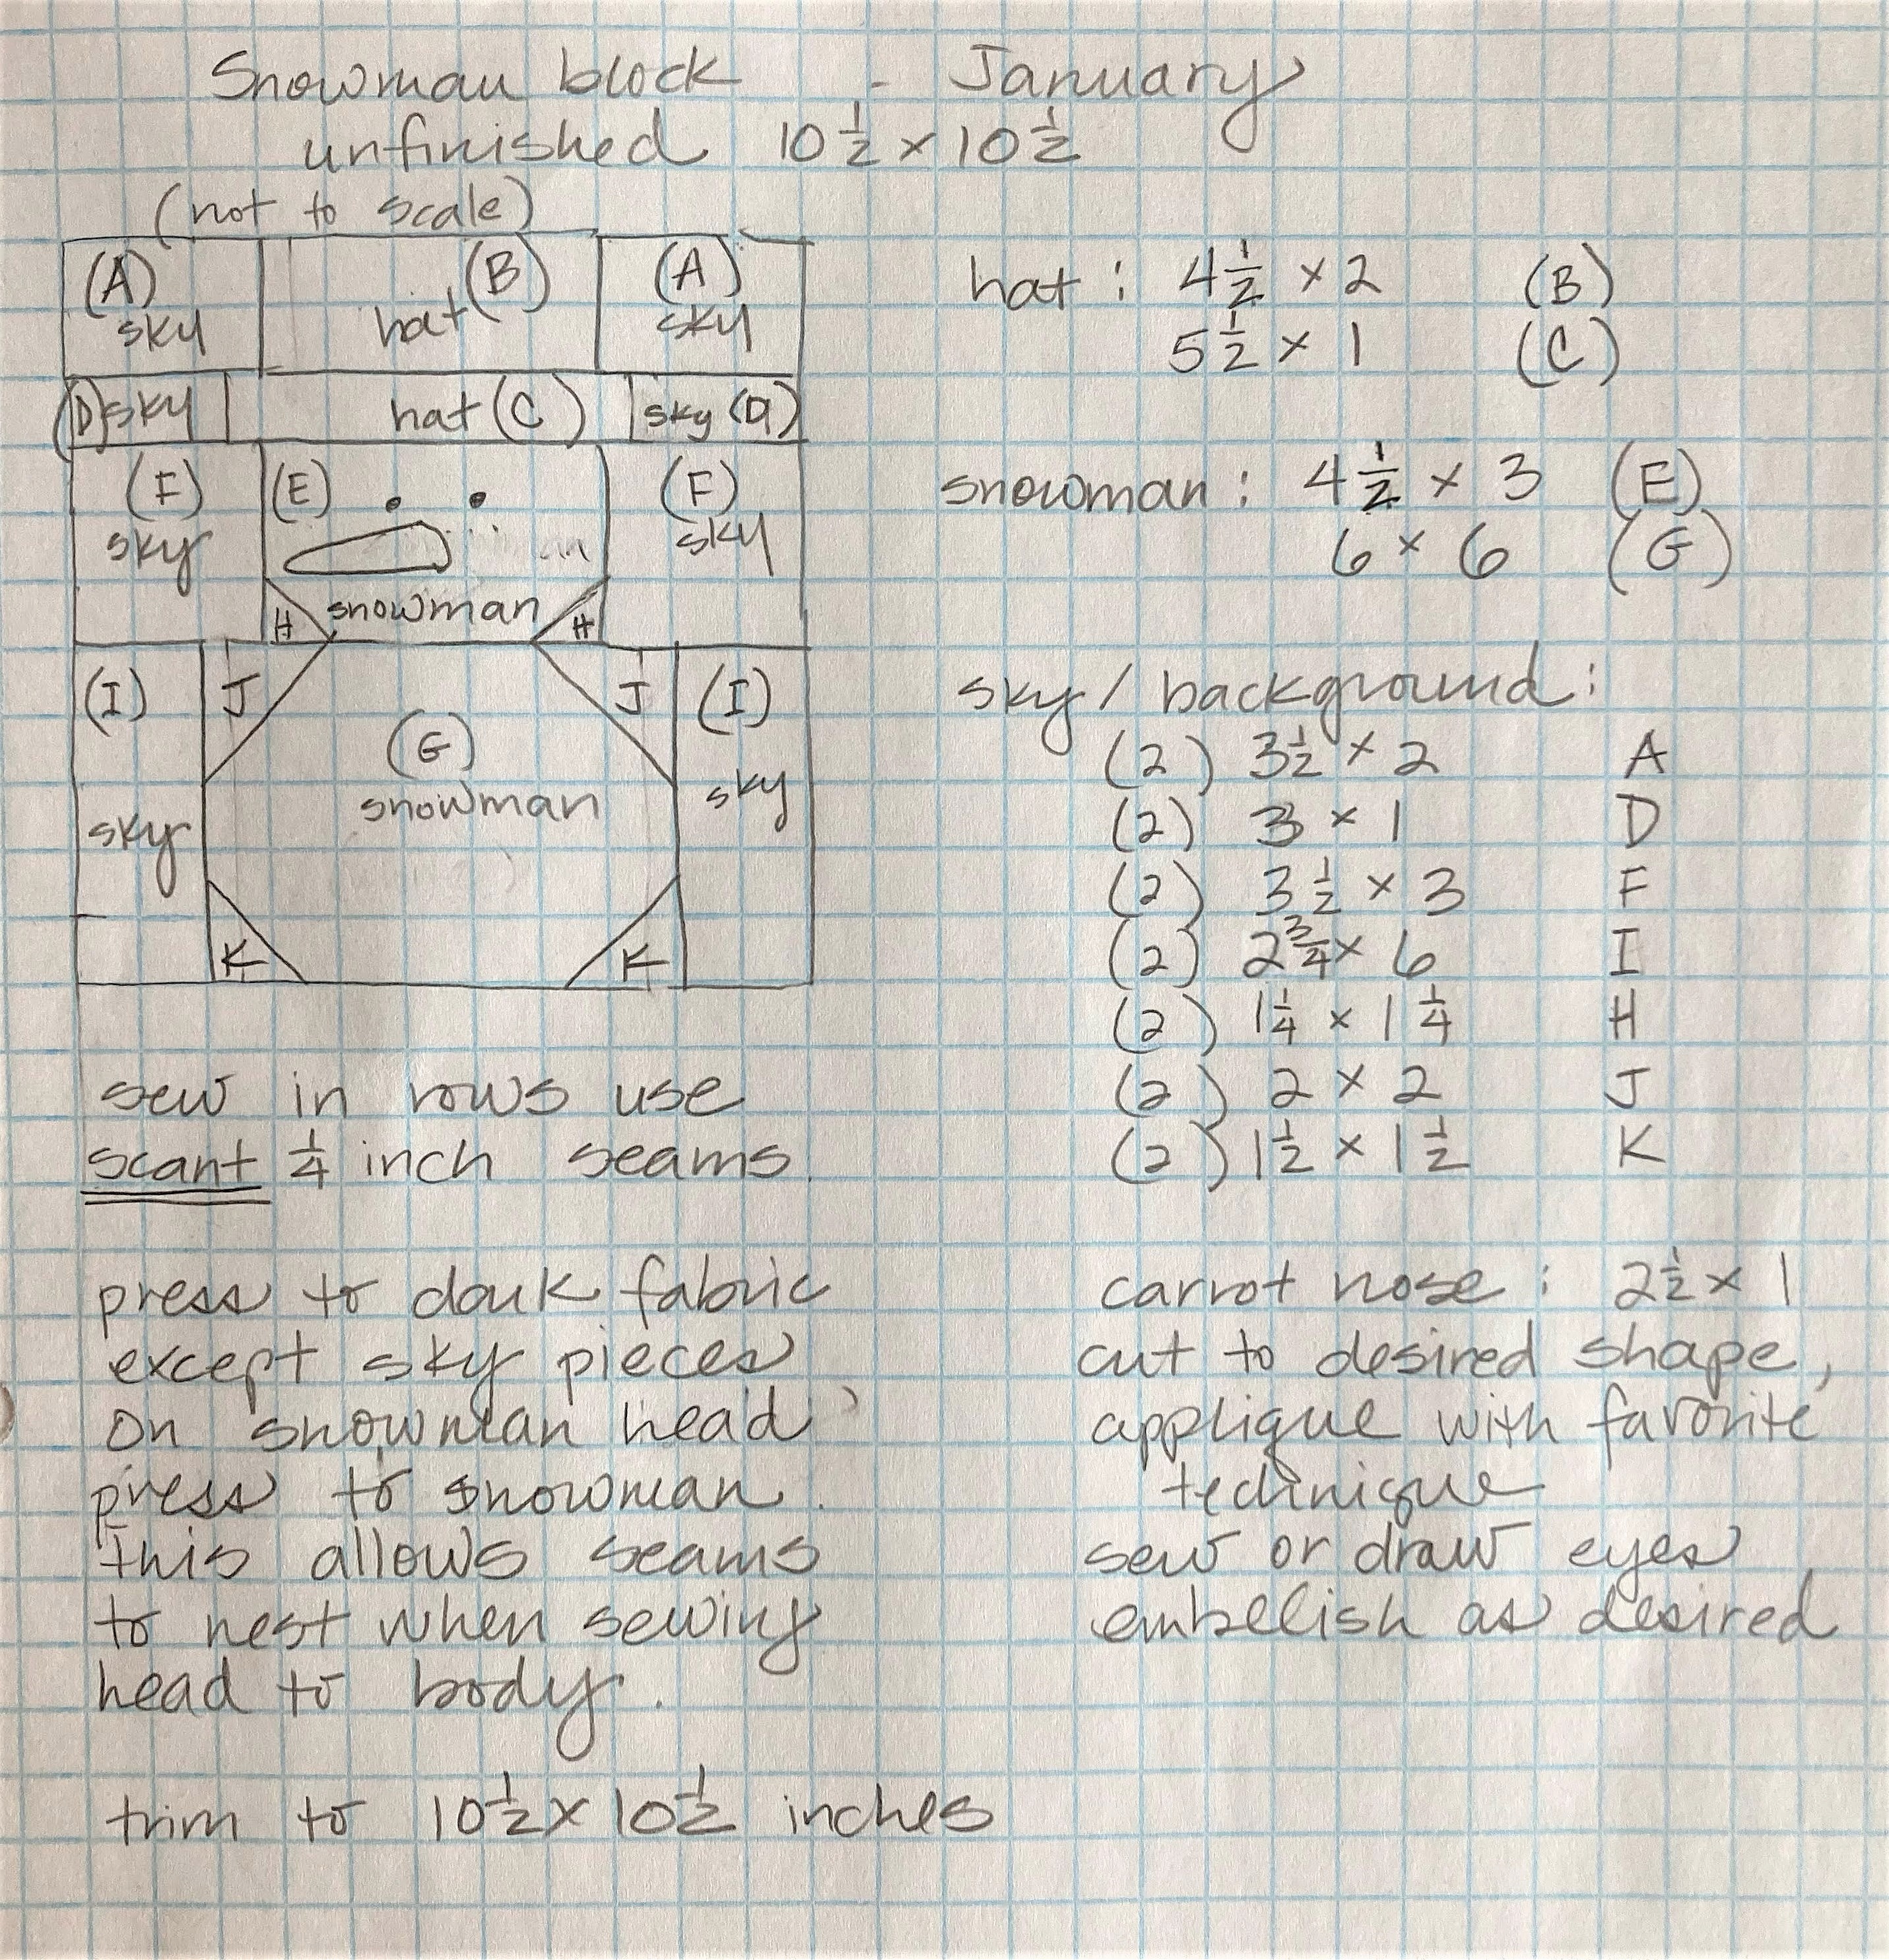 Snowman block - January
unfinished 10 1/2 x 10 1/2
(not to scale)
(A) sky
hat (B)
(A) sky
(D) sky
hat (C)
sky (D)
(F) sky
(E)
(F) sky
H
snowman
H
(I)
J
J
(I)
(G)
snowman
sky
sky
K
K
hat : 4 1/2 x 2 (B)
5 1/2 x 1 (C)
snowman : 4 1/2 x 3 (E)
6 x 6 (G)
sky / background :
(2) 3 1/2 x 2 A
(2) 3 x 1 D
(2) 3 1/2 x 3 F
(2) 2 3/4 x 6 I
(2) 1 1/4 x 1 1/4 H
(2) 2 x 2 J
(2) 1 1/2 x 1 1/2 K
sew in rows use
scant 1/4 inch seams.
press to dark fabric
except sky pieces
on snowman head
press to snowman.
this allows seams
to nest when sewing
head to body.
trim to 10 1/2 x 10 1/2 inches
carrot nose : 2 1/2 x 1
cut to desired shape,
applique with favorite
technique
sew or draw eyes
embelish as desired